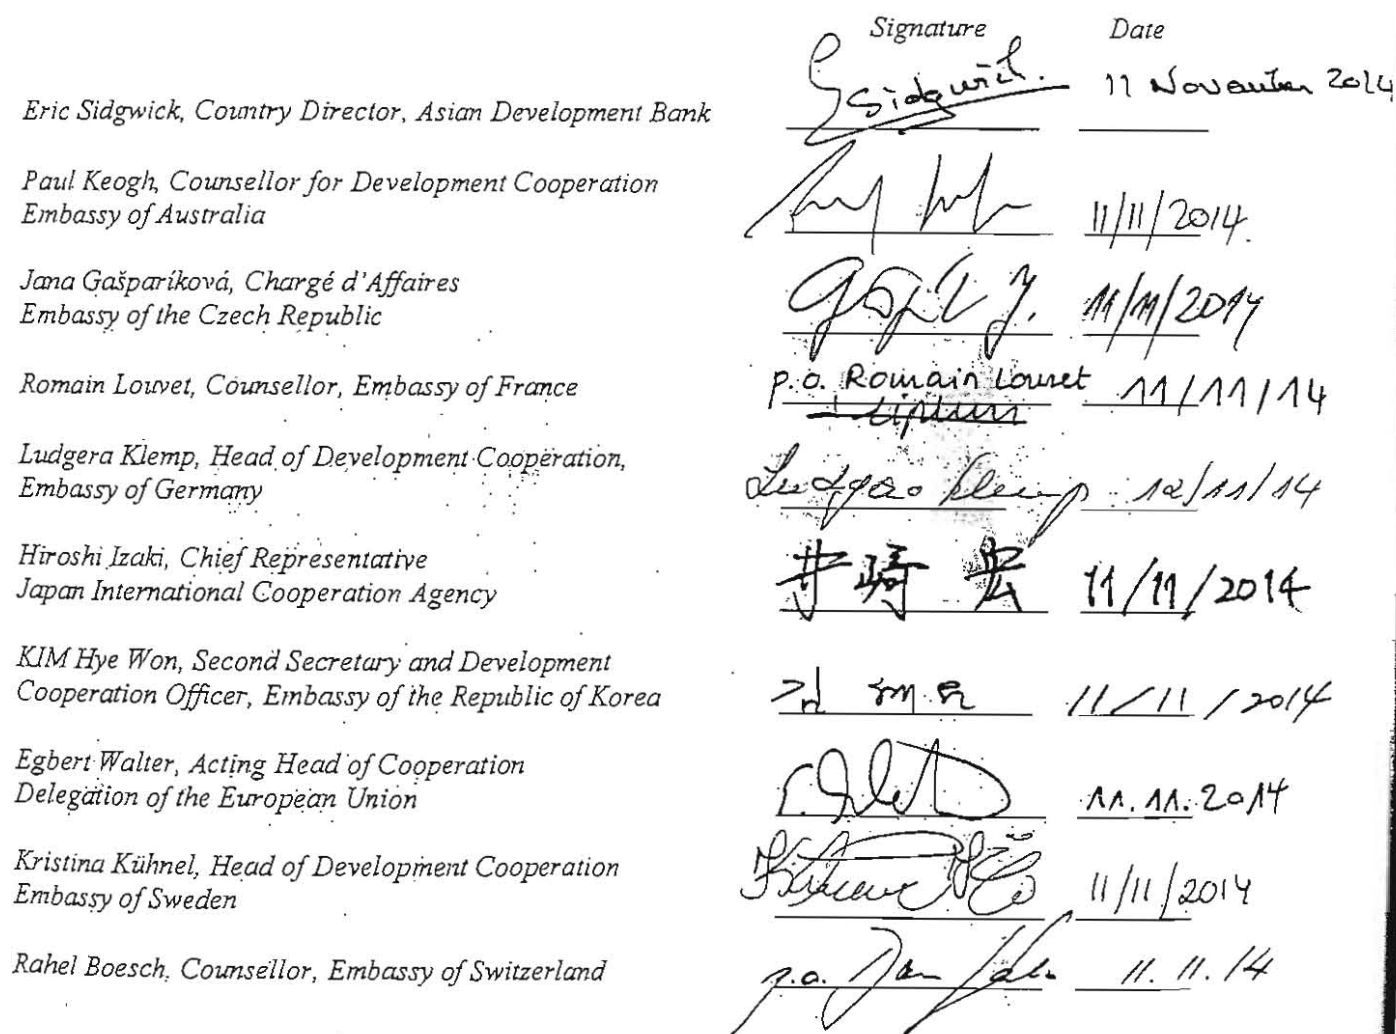 Signature Date
Eric Sidgwick, Country Director, Asian Development Bank Sidgwick. 11 November 2014
Paul Keogh, Counsellor for Development Cooperation
Embassy of Australia 11/11/2014.
Jana Gašparíková, Chargé d'Affaires
Embassy of the Czech Republic 11/11/2014
Romain Louvet, Counsellor, Embassy of France p.o. Romain Louvet 11/11/14
Ludgera Klemp, Head of Development Cooperation,
Embassy of Germany Ludgera Klemp 12/11/14
Hiroshi Izaki, Chief Representative
Japan International Cooperation Agency 井崎 宏 11/11/2014
KIM Hye Won, Second Secretary and Development
Cooperation Officer, Embassy of the Republic of Korea 11/11/2014
Egbert Walter, Acting Head of Cooperation
Delegation of the European Union 11.11.2014
Kristina Kühnel, Head of Development Cooperation
Embassy of Sweden 11/11/2014
Rahel Boesch, Counsellor, Embassy of Switzerland p.o. 11.11.14